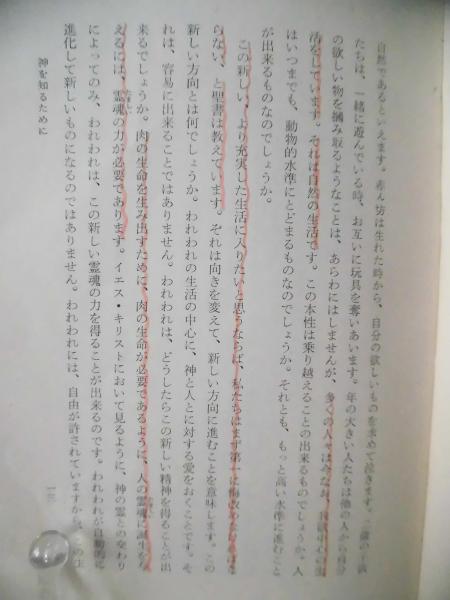 自然であるといえます。赤ん坊は生れた時から、自分の欲しいものを求めて泣きます。二歳の子供
たちは、一緒に遊んでいる時、お互いに玩具を奪いあいます。年の大きい人たちは他の人から自分
の欲しい物を摑み取るようなことは、あらわにはしませんが、多くの人々は今なお、自己中心の生
活をしています。それは自然の生活です。この本性は乗り越えることの出来るものでしょうか。人
はいつまでも、動物的水準にとどまるものなのでしょうか。それとも、もっと高い水準に進むこと
が出来るものなのでしょうか。
この新しい、より充実した生活に入りたいと思うならば、私たちはまず第一に悔改めなければな
らない、と聖書は教えています。それは向きを変えて、新しい方向に進むことを意味します。この
新しい方向とは何でしょうか。われわれの生活の中心に、神と人とに対する愛をおくことです。そ
れは、容易に出来ることではありません。われわれは、どうしたらこの新しい精神を得ることが出
来るでしょうか。肉の生命を生み出すために、肉の生命が必要であるように、人の霊魂に誕生を与
えるには、霊魂の力が必要であります。イエス・キリストにおいて見るように、神の霊との交わり
によってのみ、われわれは、この新しい霊魂の力を得ることが出来るのです。われわれが自動的に
進化して新しいものになるのではありません。われわれには、自由が許されていますから、この生
神を知るために